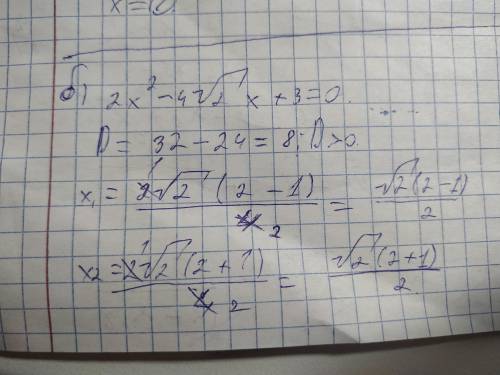 б) 2x² - 4√2 x + 3 = 0.
D = 32 - 24 = 8; D > 0.
x₁ = 2√2 (2 - 1) / 4 2 = √2 (2 - 1) / 2
x₂ = 2 1 √2 (2 + 1) / 4 2 = √2 (2 + 1) / 2